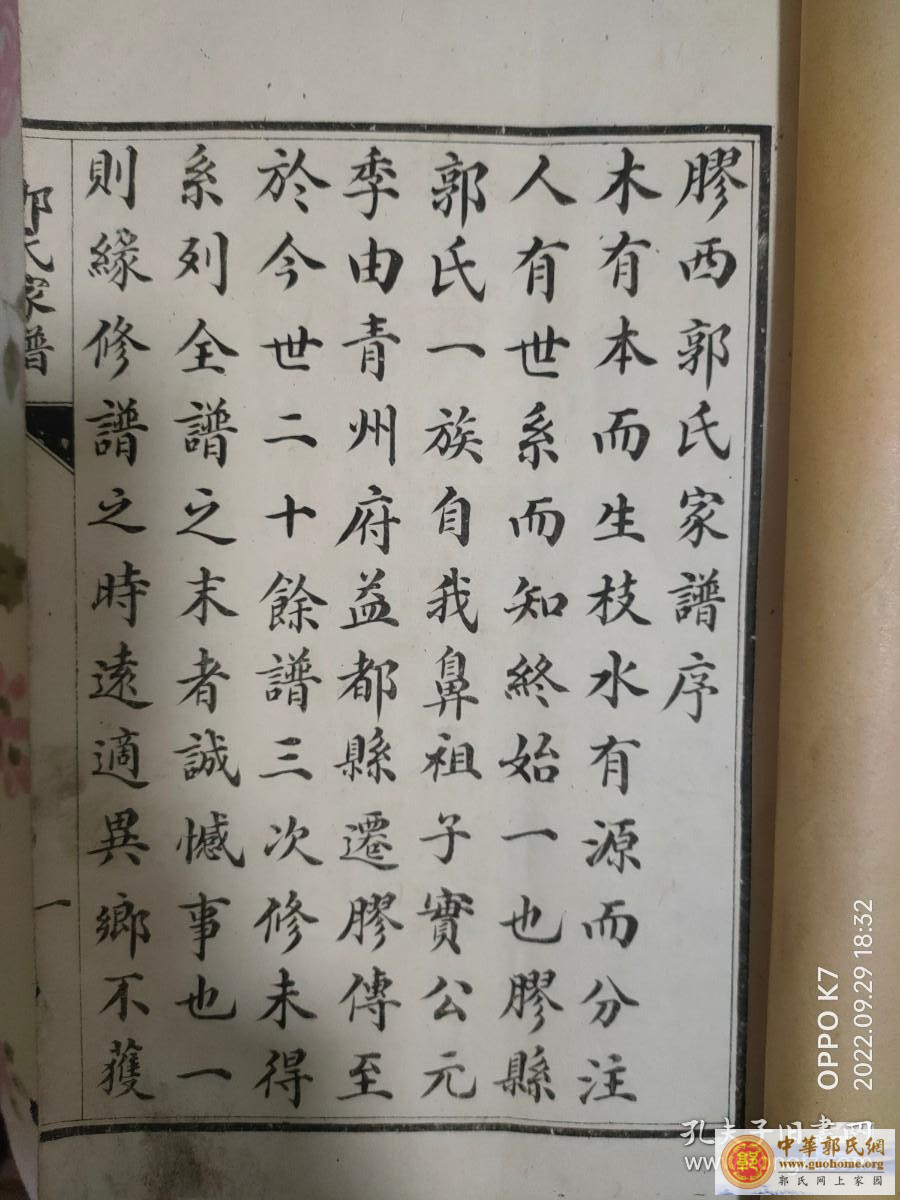 膠西郭氏家譜序
木有本而生枝水有源而分注
人有世系而知終始一也膠縣
郭氏一族自我鼻祖子實公元
季由青州府益都縣遷膠傳至
於今世二十餘譜三次修未得
系列全譜之末者誠憾事也一
則緣修譜之時遠適異鄉不獲
郭氏家譜
一
OPPO K7
2022.09.29 18:32
孔夫子旧書网
中華郭氏網
www.guohome.org
郭氏网上家园